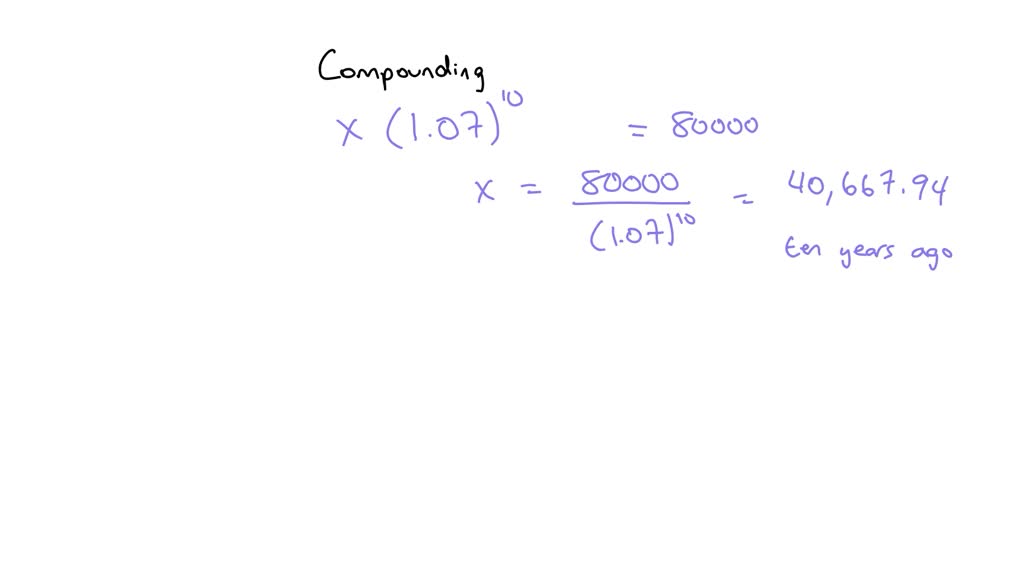 Compounding
x (1.07)^10 = 80000
x = 80000 / (1.07)^10 = 40,667.94
ten years ago